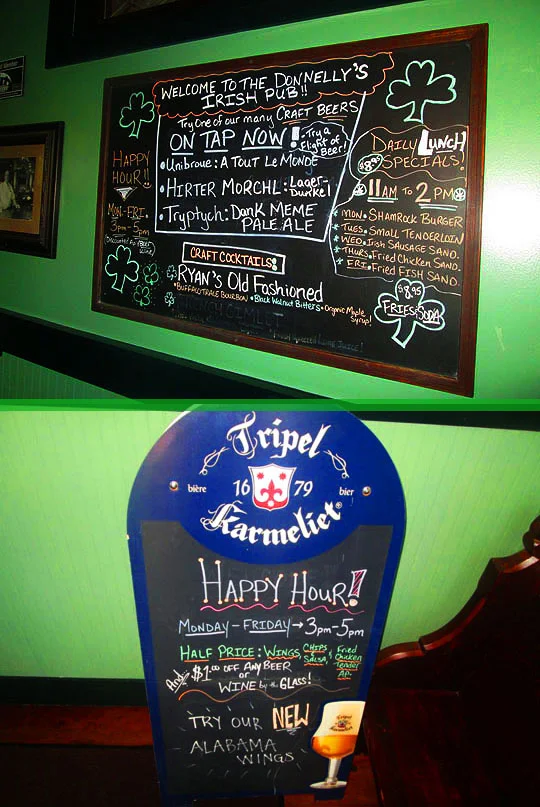 WELCOME TO THE DONNELLY'S
IRISH PUB!!
Try One of our many CRAFT BEERS
ON TAP NOW!
Try a
Flight of
Beer!
• Unibroue: A TOUT LE MONDE
• HIRTER MORCHL: Lager-
Dunkel
• Tryptych: DANK MEME
PALE ALE
HAPPY
HOUR!!
MON-FRI.
3pm-5pm
Discounted Beer
Wine
CRAFT COCKTAILS:
RYAN'S Old Fashioned
• BUFFALO TRACE BOURBON • Black Walnut Bitters • Organic Maple
Syrup!
DAILY LUNCH
$8.95 SPECIALS!
11AM To 2 PM
* MON. SHAMROCK BURGER
* TUES. SMALL TENDERLOIN
* WED. Irish SAUSAGE SAND.
* THURS. Fried Chicken SAND.
* FRI. Fried FISH SAND.
$8.95
FRIES & SODA
Tripel
bière 16 79 bier
Karmeliet®
HAPPY HOUR!
MONDAY - FRIDAY → 3pm-5pm
HALF PRICE: WINGS, CHIPS & SALSA, & Fried Chicken Tender Ap.
And $1.00 OFF ANY BEER
or
WINE by the GLASS!
TRY OUR NEW
ALABAMA
WINGS
Tripel
Karmeliet